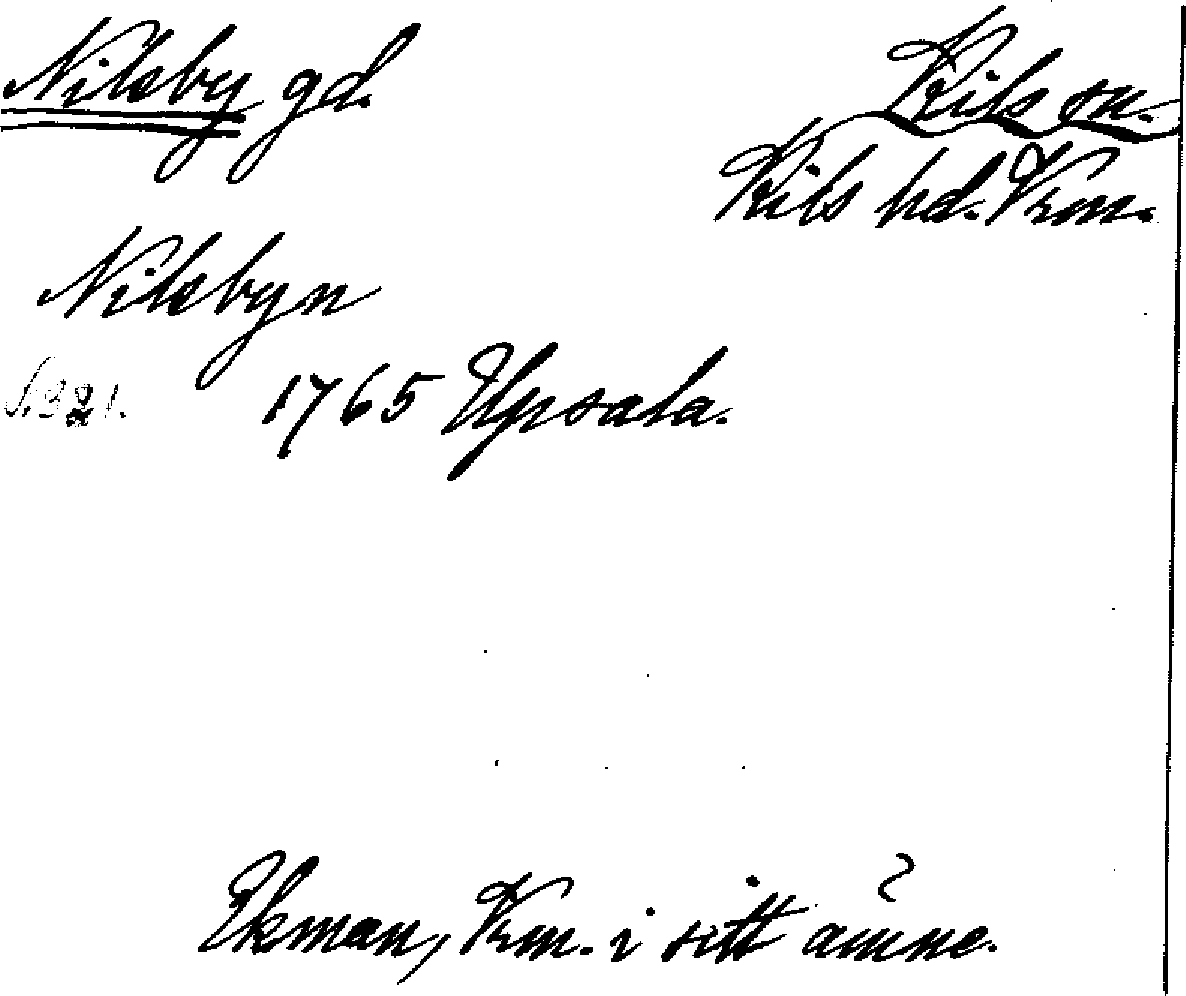 Nilsby gd. Kils sn.
Kils hd. Vrm.
Nilsbyn
S. 321. 1765 Upsala.
Ekman, Vrm. i sitt ämne.